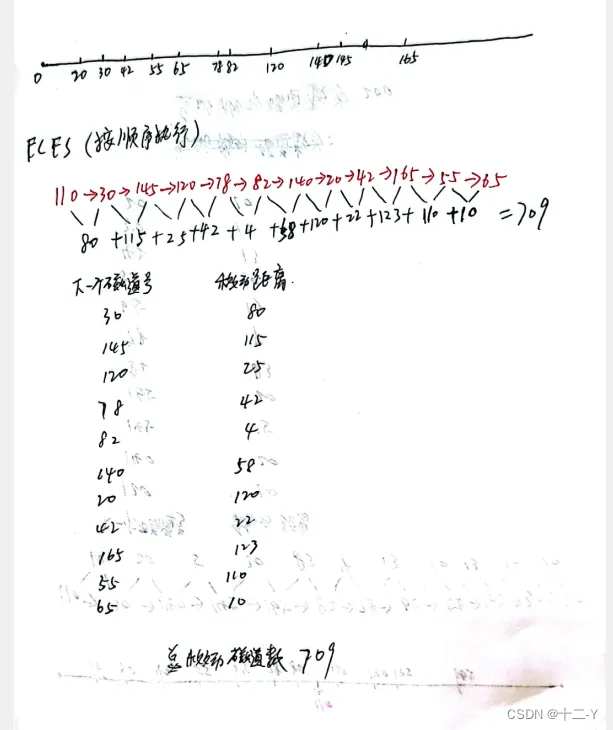 0 20 30 42 55 65 78 82 120 140 145 165
FCFS (按顺序执行)
110→30→145→120→78→82→140→20→42→165→55→65
80 +115 +25 +42 +4 +58 +120 +22 +123 +110 +10 =709
下一个磁道号 移动距离
30 80
145 115
120 25
78 42
82 4
140 58
20 120
42 22
165 123
55 110
65 10
总移动磁道数 709
CSDN @十二-Y